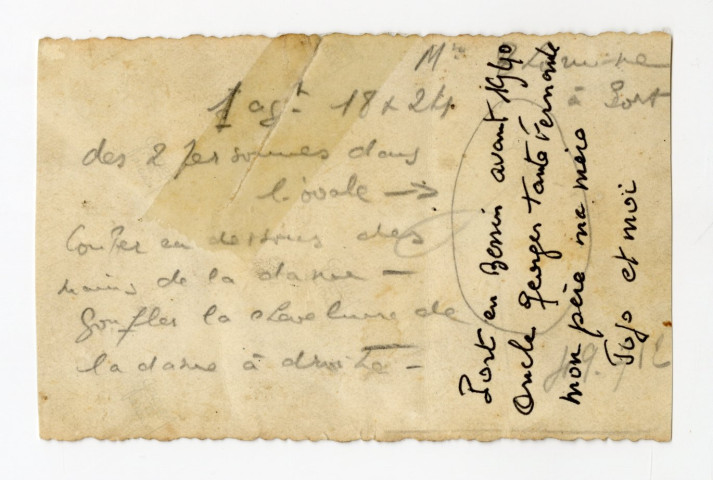 Mme
à Port
1 agt 18 x 24
des 2 personnes dans
l'ovale →
Couper en dessous des
mains de la dame -
Gonfler la chevelure de
la dame à droite -
Port en Bessin avant 1940
Oncle Georges tante Fernande
mon père ma mère
et moi